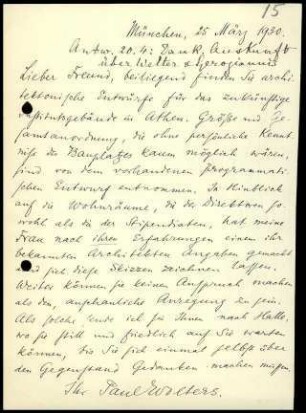 15
München, 25 März 1930.
Antw. 20. 4: Dank, Auskunft
über Welter & Gerogiannis
Lieber Freund, beiliegend finden Sie archi-
tektonische Entwürfe für das zukünftige
Institutsgebäude in Athen. Größe und Ge-
samtanordnung, die ohne persönliche Kennt-
nisse des Bauplatzes kaum möglich wären,
sind von dem vorhandenen programmati-
schen Entwurf entnommen. In Hinblick
auf die Wohnräume, die der Direktoren so-
wohl als die der Stipendiaten, hat meine
Frau nach ihren Erfahrungen einem ihr
bekannten Architekten Angaben gemacht
und sich diese Skizzen zeichnen lassen.
Weiter können sie keinen Anspruch machen
als den, anschauliche Anregung zu sein.
Als solche sende ich sie Ihnen nach Halle,
wo sie still und friedlich auf Sie warten
können, bis Sie sich einmal selbst über
den Gegenstand Gedanken machen mögen.
Ihr Paul Wolters.